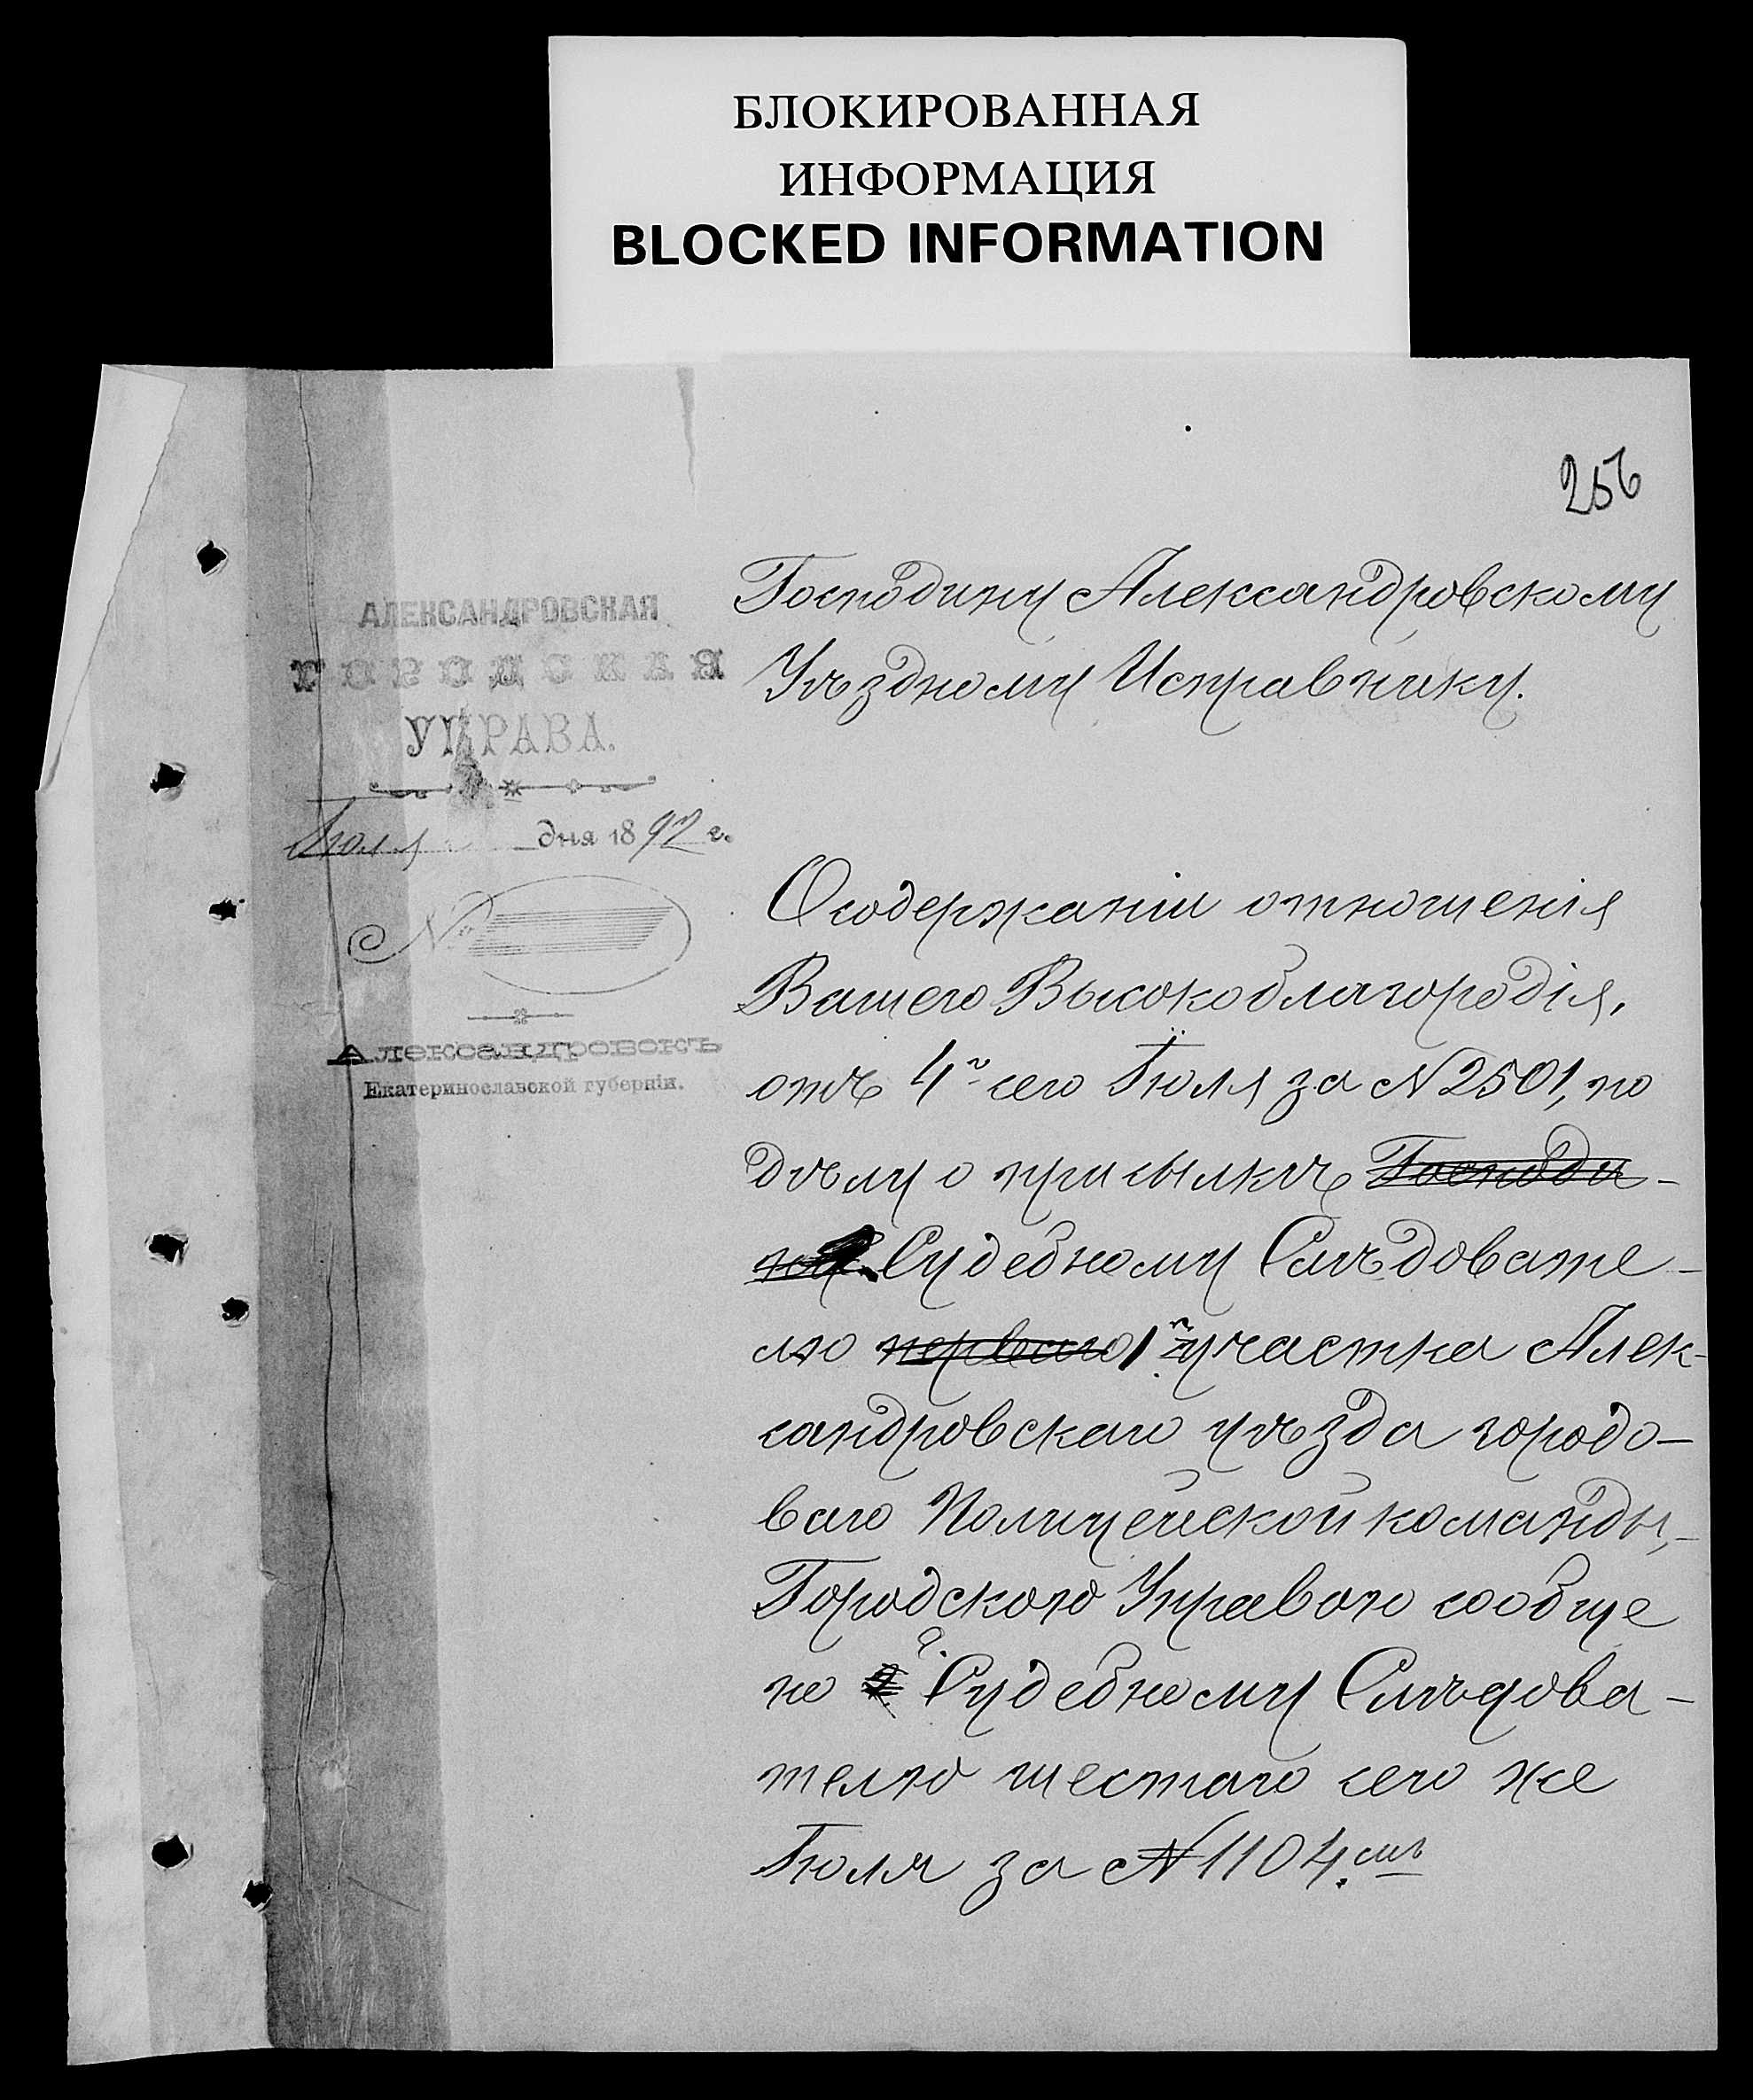 БЛОКИРОВАННАЯ
ИНФОРМАЦИЯ
BLOCKED INFORMATION
256
АЛЕКСАНДРОВСКАЯ
ГОРОДСКАЯ
УПРАВА.
Іюля дня 1892 г.
№
Александровскъ
Екатеринославской губерніи.
Господину Александровскому
Уѣздному Исправнику.
О содержаніи отношенія
Вашего Высокоблагородія,
отъ 4го сего Іюля за №2501, по
дѣлу о присылкѣ Господи-
ну Судебному Слѣдовате-
лю перваго 1го участка Алек-
сандровскаго уѣзда городо-
ваго Полицейской команды,-
Городскою Управою сообще
но Г. Судебному Слѣдова-
телю шестаго сего же
Іюля за №1104.мъ